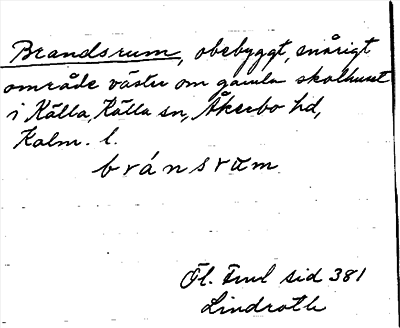 Brandsrum, obebyggt, snårigt
område väster om gamla skolhuset
i Källa, Källa sn, Åkerbo hd,
Kalm. l.
bránsrum
Öl. Fml sid 381
Lindroth